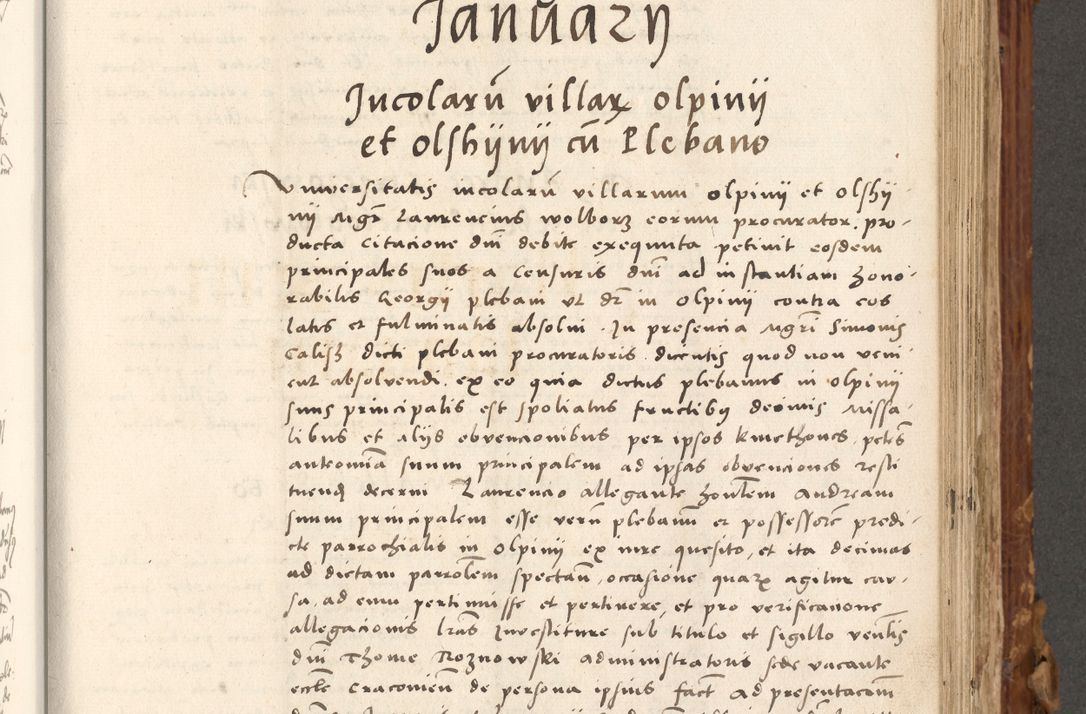 Januarij
Incolarū villarꝝ olpinij
et olshijnij cū Plebano
Vniuersitatis incolarū villarum olpinij et olshij
nij Mgr̄ Laurencius wolborz eorum procurator. pro-
ducta Citacione dnī debite exequuta petiuit eosdem
principales suos a Censuris dnī ad instantiam hono-
rabilis Georgij plebani vt dr̄ in Olpinij contra eos
latis et fulminatis absolui. In presencia Mgrī Simonis
Calisz dicti plebani procuratoris dicentis quod non veni
ent absolvendi. ex eo quia dictus plebanus in olpinij
suus principalis est spoliatus fructibus decimis Missa-
libus et alijs obvencionibus per ipsos kmethones. petēs
anteomīa suum principalem ad ipsas obvenciones resti
tuendū decerni Laurencio allegante honlem Andream
suum principalem esse verū plebanū et possessorē predi-
cte parrochialis in Olpinij ex iure quesito, et ita decimas
ad dictam parrolem spectan̄, occasione quarꝝ agitur cau-
sa, ad eum pertinuisse et pertinere, et pro verificacione
allegacionis lrās Inuestiture sub titulo et sigillo venlīs
dnī Thome Roznowski administratoris sede vacante
eccle Cracouien̄ de persona ipsius fact̄ ad presentacōm